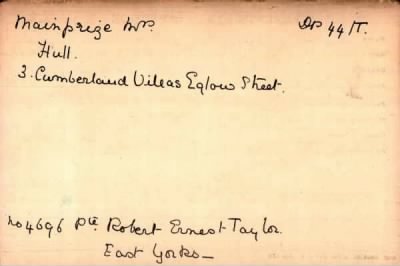 Mainprize Mrs. DP 44/T.
Hull.
3. Cumberland Villas Eglow Street.
No 4696 Pte Robert Ernest Taylor.
East Yorks—